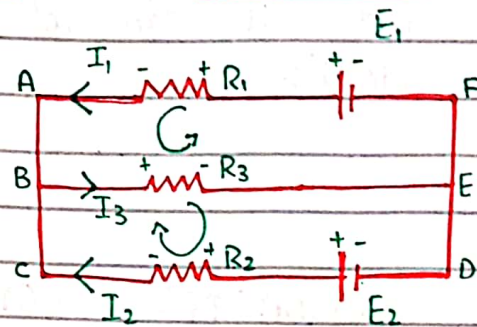 E₁
I₁ - + R₁ + -
A F
B + - R₃ E
I₃
- + R₂ + -
C D
I₂ E₂